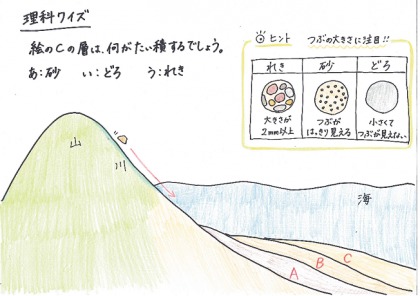 理科クイズ
絵のCの層は、何がたい積するでしょう。
あ:砂　い:どろ　う:れき
ヒント　つぶの大きさに注目!!
れき　砂　どろ
大きさが
2mm以上
つぶが
はっきり見える
小さくて
つぶが見えない
山
川
海
A
B
C